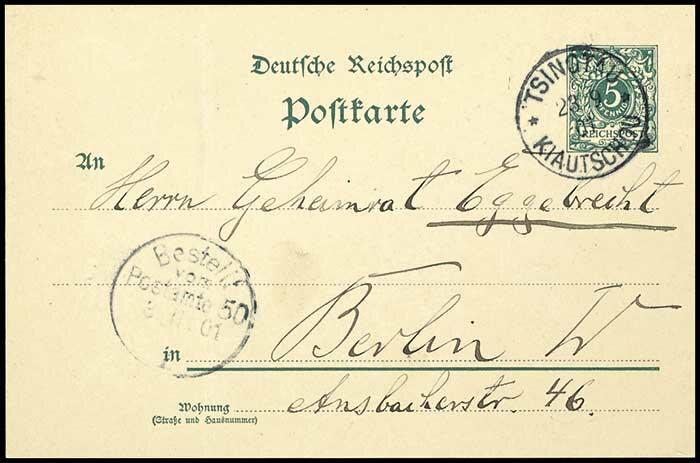 Deutsche Reichspost
Postkarte
TSINGTAU
23 9
01
* *
KIAUTSCHOU
5
PFENNIG
REICHSPOST
An
Herrn Geheimrat Eggebrecht
Bestellt
vom
Postamte 50
01
in Berlin W
Wohnung
(Straße und Hausnummer)
Ansbacherstr. 46.